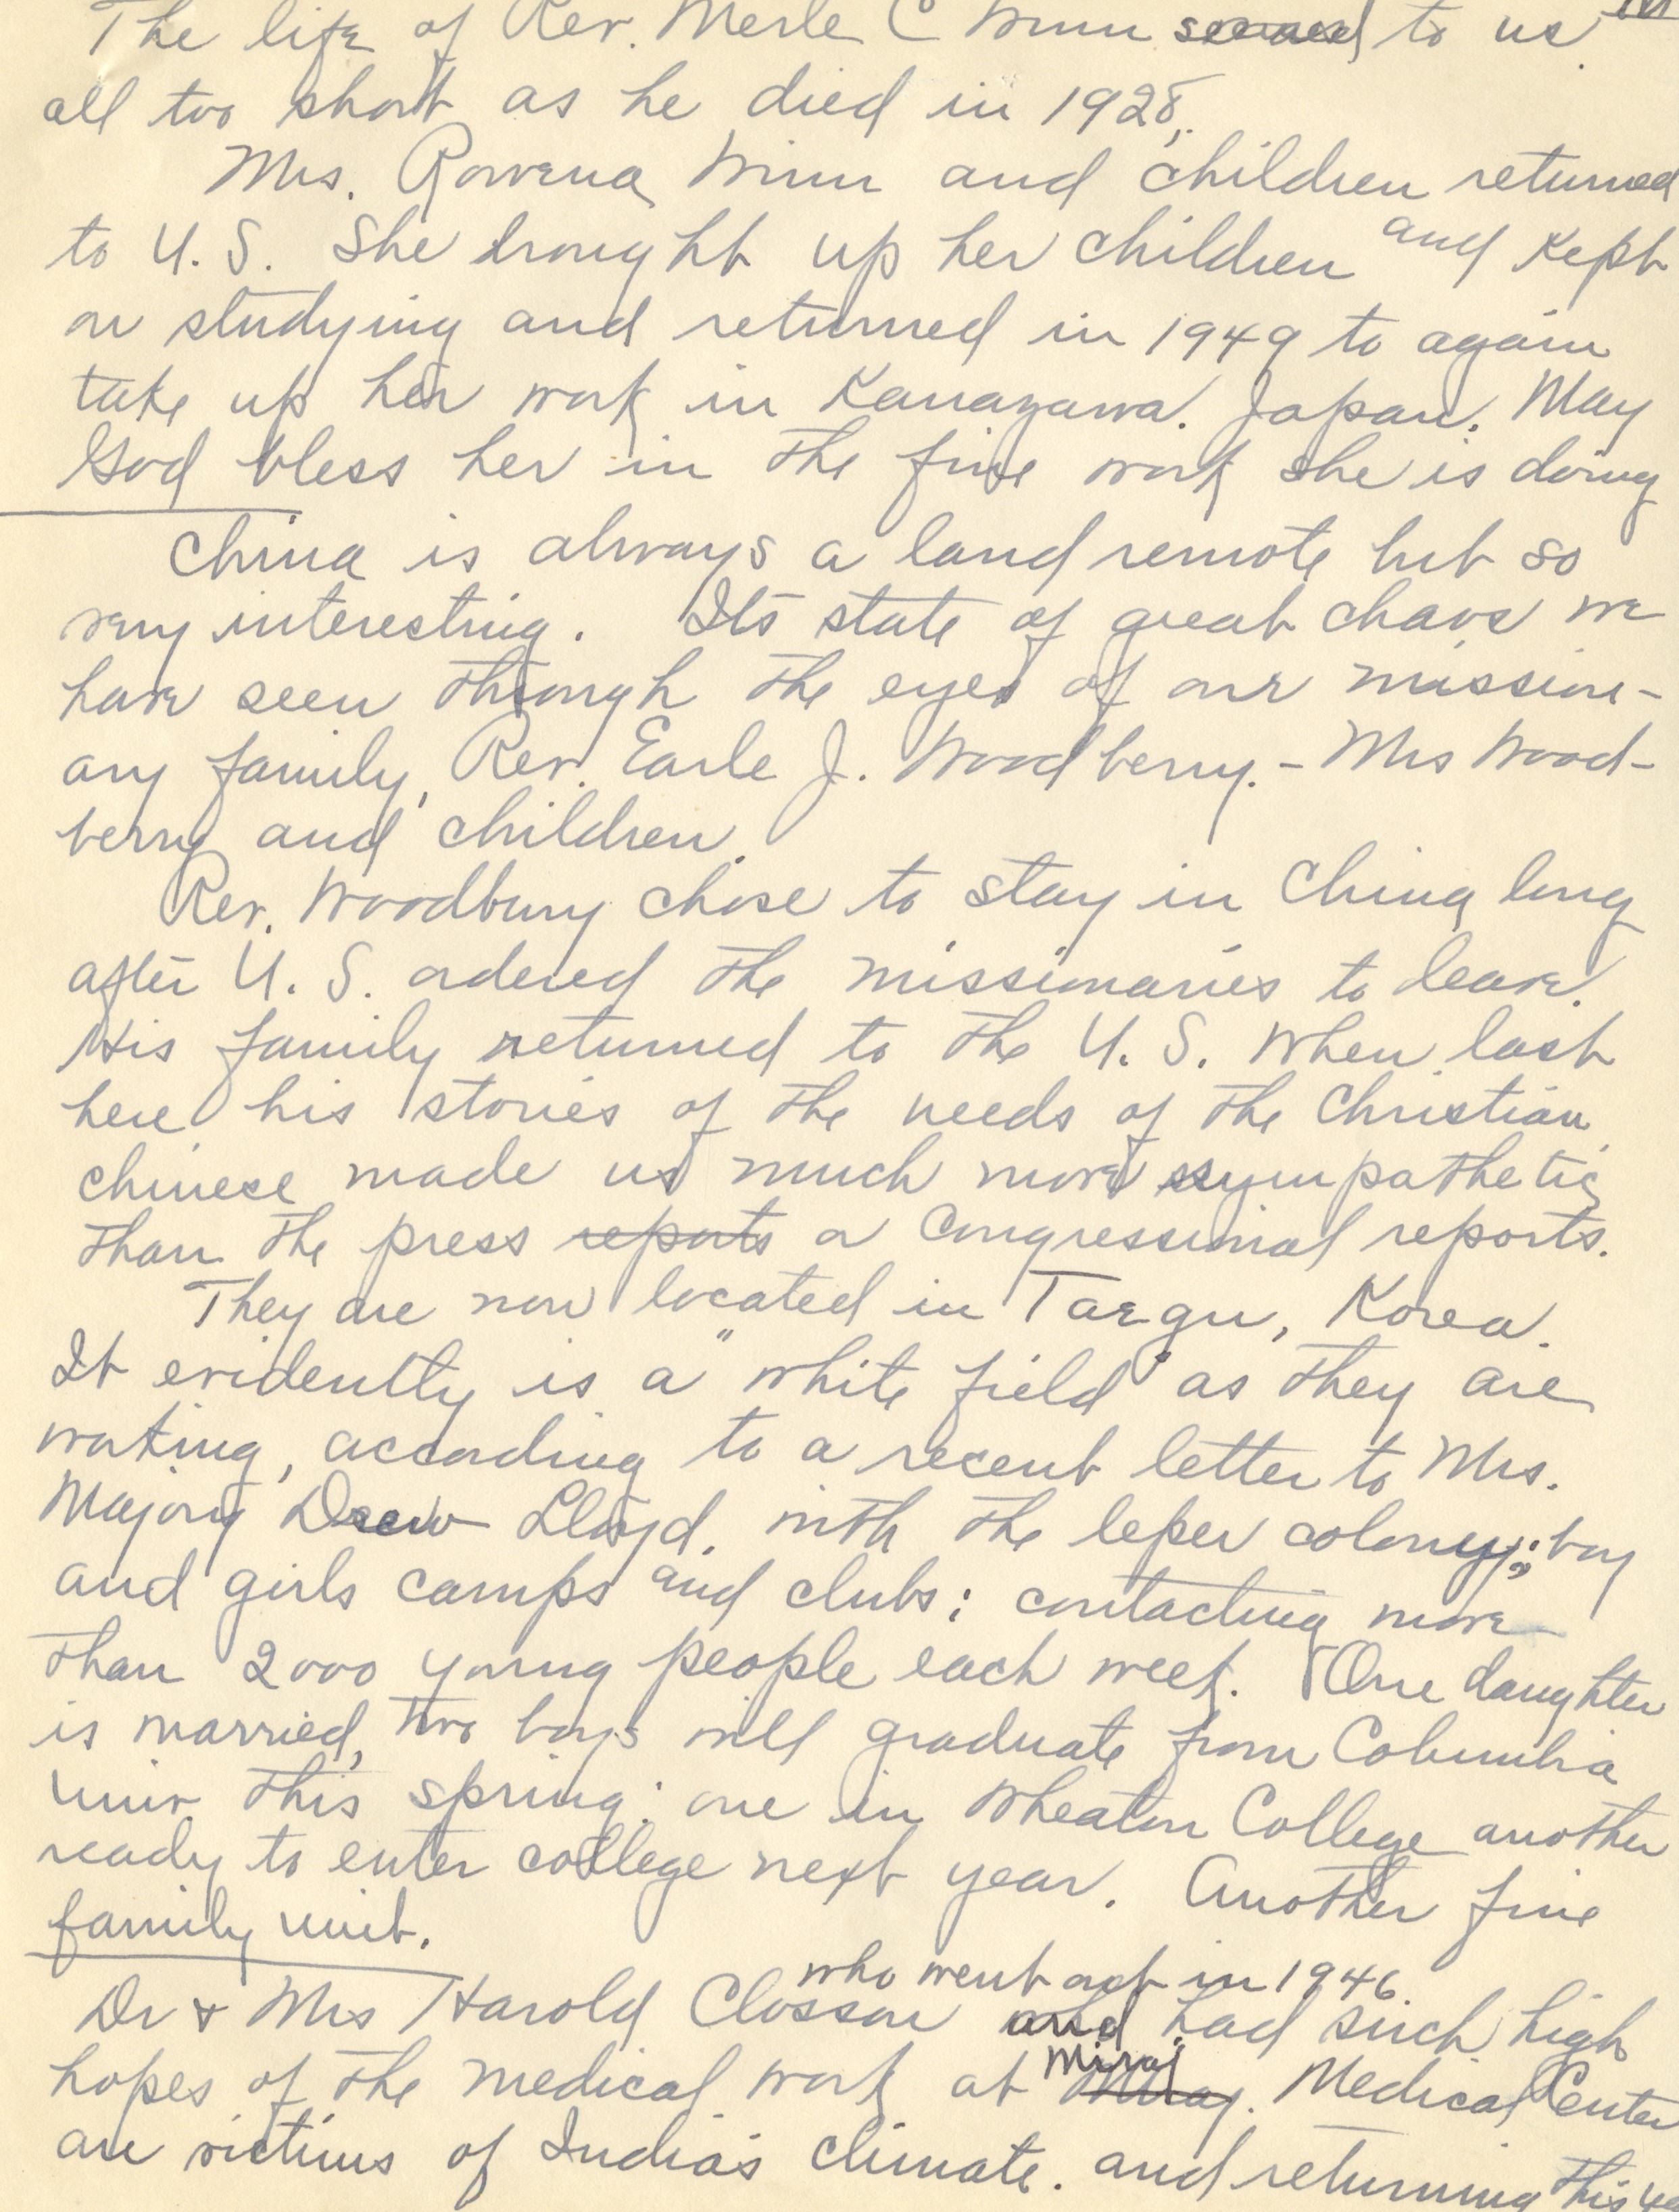 The life of Rev. Merle C Winn seemed to us
all too short as he died in 1928,.
Mrs. Rowena Winn and children returned
to U. S. She brought up her children and kept
on studying and returned in 1949 to again
take up her work in Kanazawa. Japan. May
God bless her in the fine work she is doing
China is always a land remote but so
very interesting. Its state of great chaos we
have seen through the eyes of our mission-
ary family, Rev. Earle J. Woodberry. - Mrs Wood-
berry and children.
Rev. Woodbury chose to stay in China long
after U. S. ordered the missionaries to leave.
His family returned to the U. S. When last
here his stories of the needs of the Christian
chinese made us much more sympathetic
than the press reports or Congressional reports.
They are now located in Taegu, Korea.
It evidently is a "white field" as they are
working, according to a recent letter to Mrs.
Majory Drew Lloyd. with the leper colony; boy
and girls camps and clubs; contacting more
than 2000 young people each week. One daughter
is married, two boys will graduate from Columbia
Univ this spring; one in Wheaton College another
ready to enter college next year. Another fine
family unit.
who went out in 1946.
Dr & Mrs Harold Closson and had such high
Miraj
hopes of the medical work at Medical Center
are victims of India's climate. and returning this